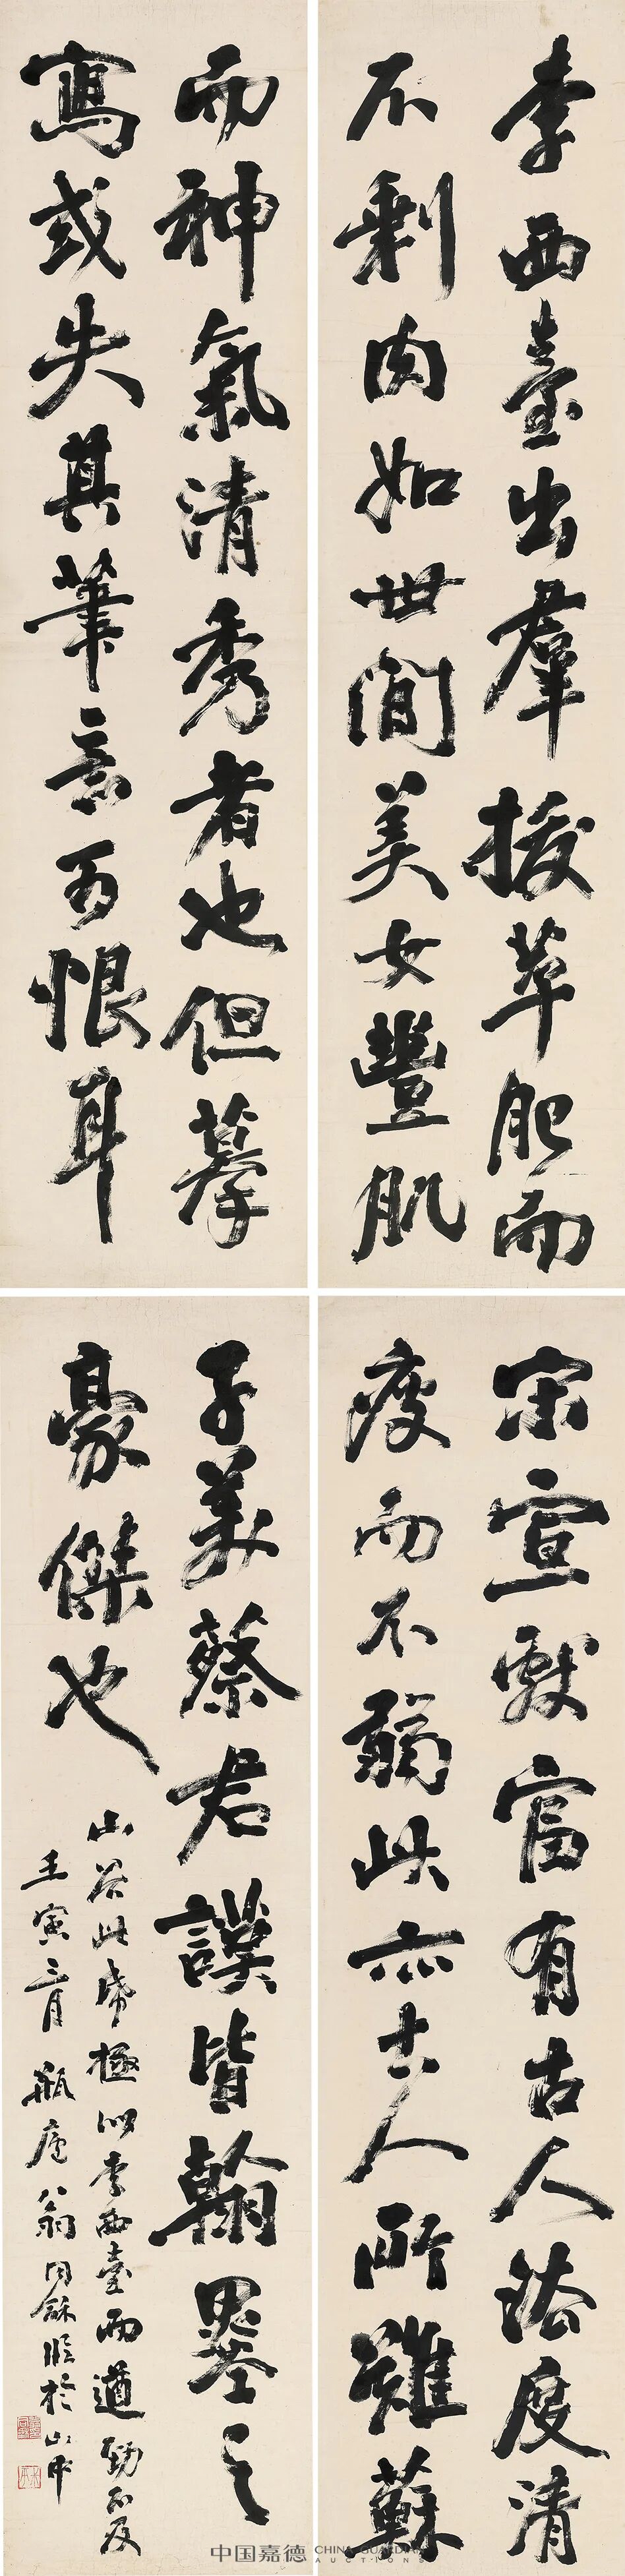 李西臺出羣拔萃肥而
不剩肉如世間美女豐肌
而神氣清秀者也但摹
寫或失其筆意可恨耳
宋宣獻富有古人法度清
瘦而不弱此亦古人所難蘇
子美蔡君謨皆翰墨之
豪傑也
山谷此帋極似李西臺而遒勁不及
壬寅三月瓶廬翁同龢臨於山中
中国嘉德 CHINA GUARDIAN
AUCTIONS